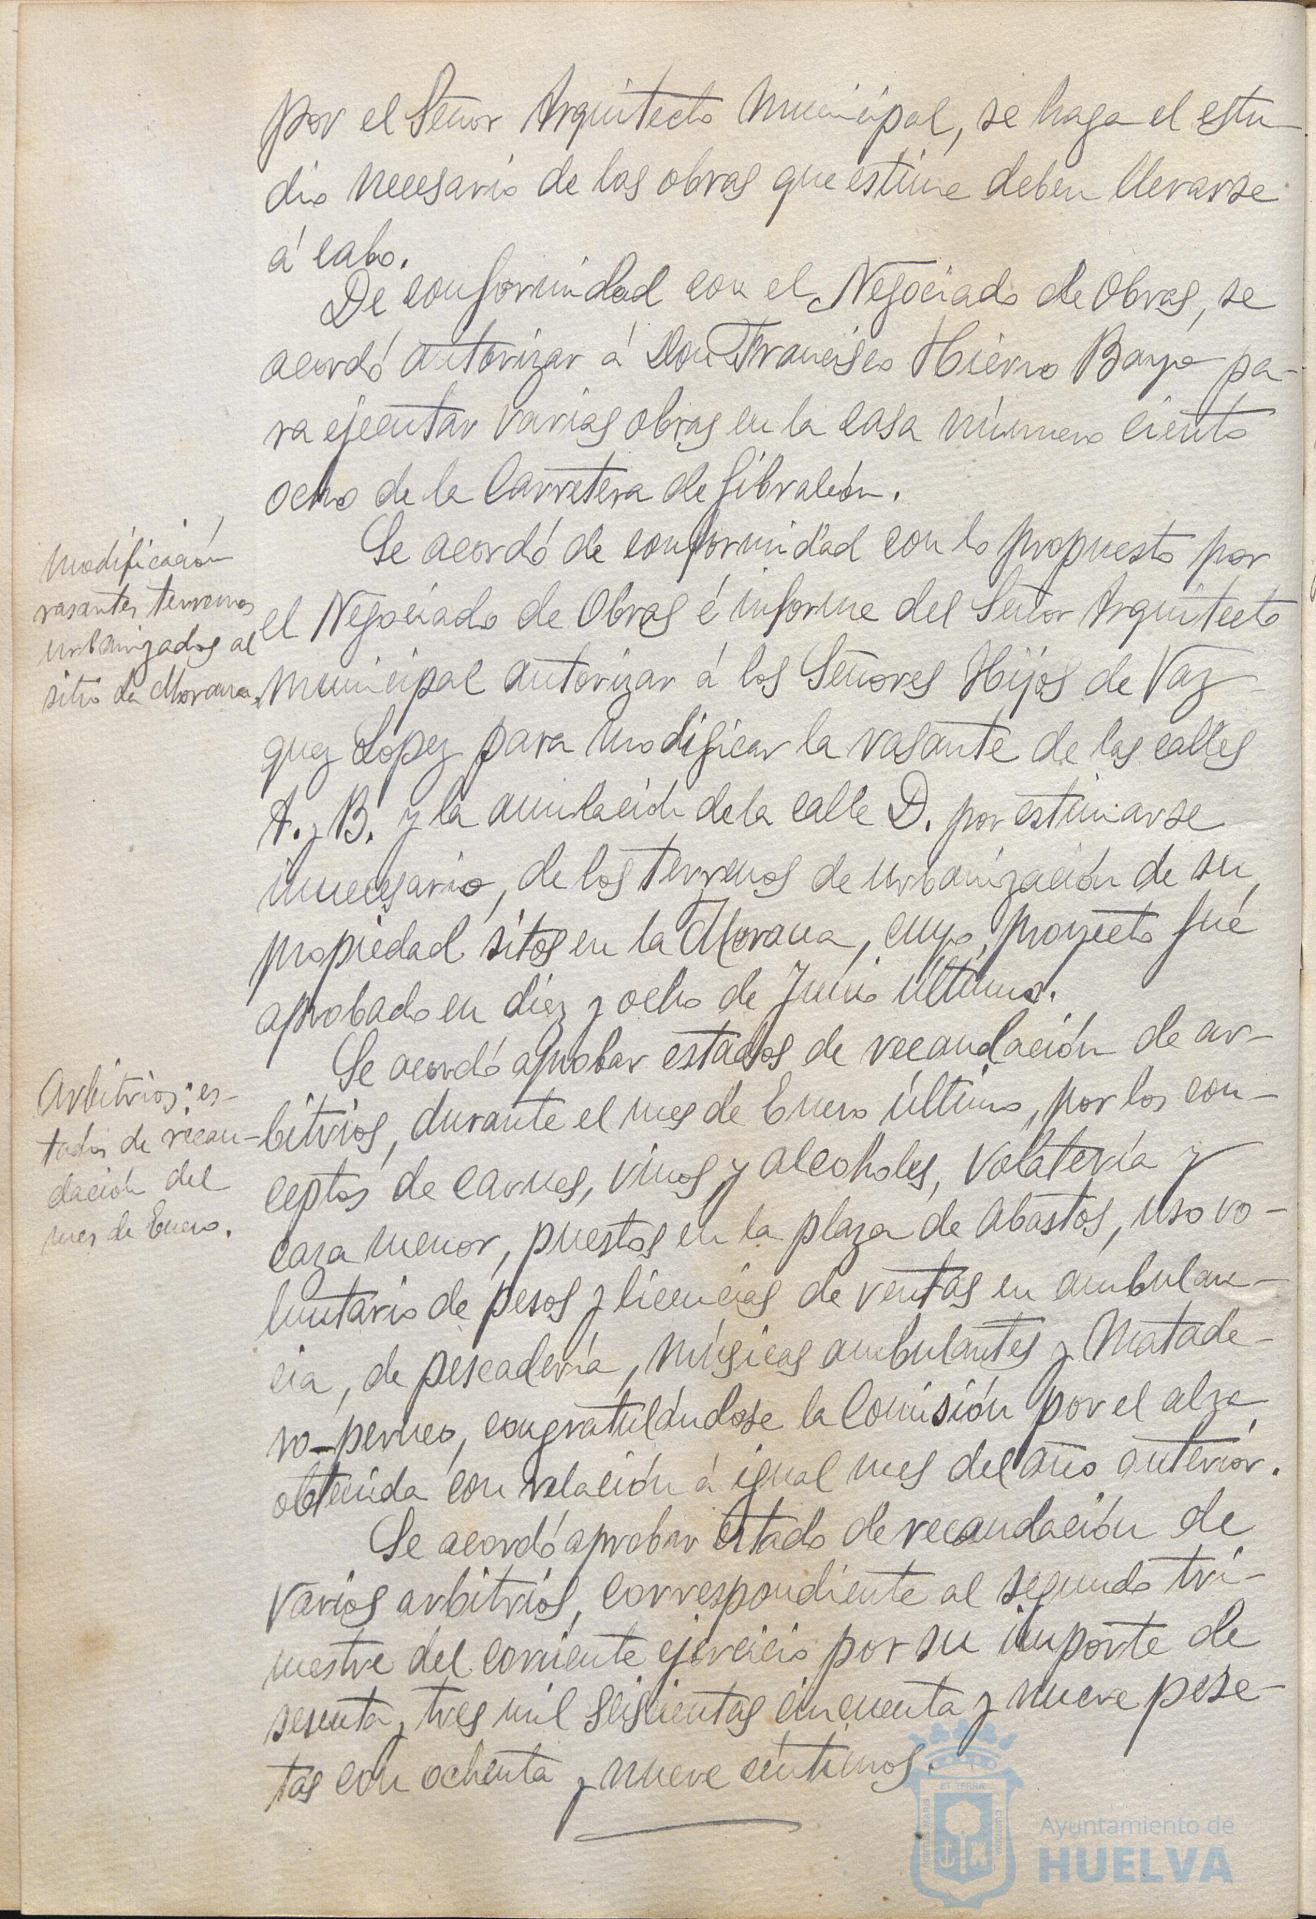 por el Señor Arquitecto Municipal, se haga el estu-
dio necesario de las obras que estime deben llevarse
á cabo.
De conformidad con el Negociado de Obras, se
acordó autorizar á Don Francisco Hierro Bayo pa-
ra ejecutar varias obras en la casa número ciento
ocho de la Carretera de Gibraleón.
Modificación
rasantes terrenos
urbanizados al
sitio de Morana.
Se acordó de conformidad con lo propuesto por
el Negociado de Obras é informe del Señor Arquitecto
Municipal autorizar á los Señores Hijos de Vaz-
quez López para modificar la rasante de las calles
A. y B. y la anulación de la calle D. por estimarse
innecesario, de los terrenos de urbanización de su
propiedad sitos en la Morana, cuyo proyecto fué
aprobado en diez y ocho de Junio último.
Arbitrios: es-
tados de recau-
dación del
mes de Enero.
Se acordó aprobar estados de recaudación de ar-
bitrios, durante el mes de Enero último, por los con-
ceptos de carnes, vinos y alcoholes, volatería y
caza menor, puestos en la plaza de Abastos, uso vo-
luntario de pesos y licencias de ventas en ambulan-
cia, de pescadería, músicas ambulantes y Matade-
ro-perneo, congratulándose la Comisión por el alza
obtenida con relación á igual mes del año anterior.
Se acordó aprobar estado de recaudación de
varios arbitrios, correspondiente al segundo tri-
mestre del corriente ejercicio por su importe de
sesenta y tres mil seiscientas cincuenta y nueve pese-
tas con ochenta y nueve céntimos.
Ayuntamiento de
HUELVA